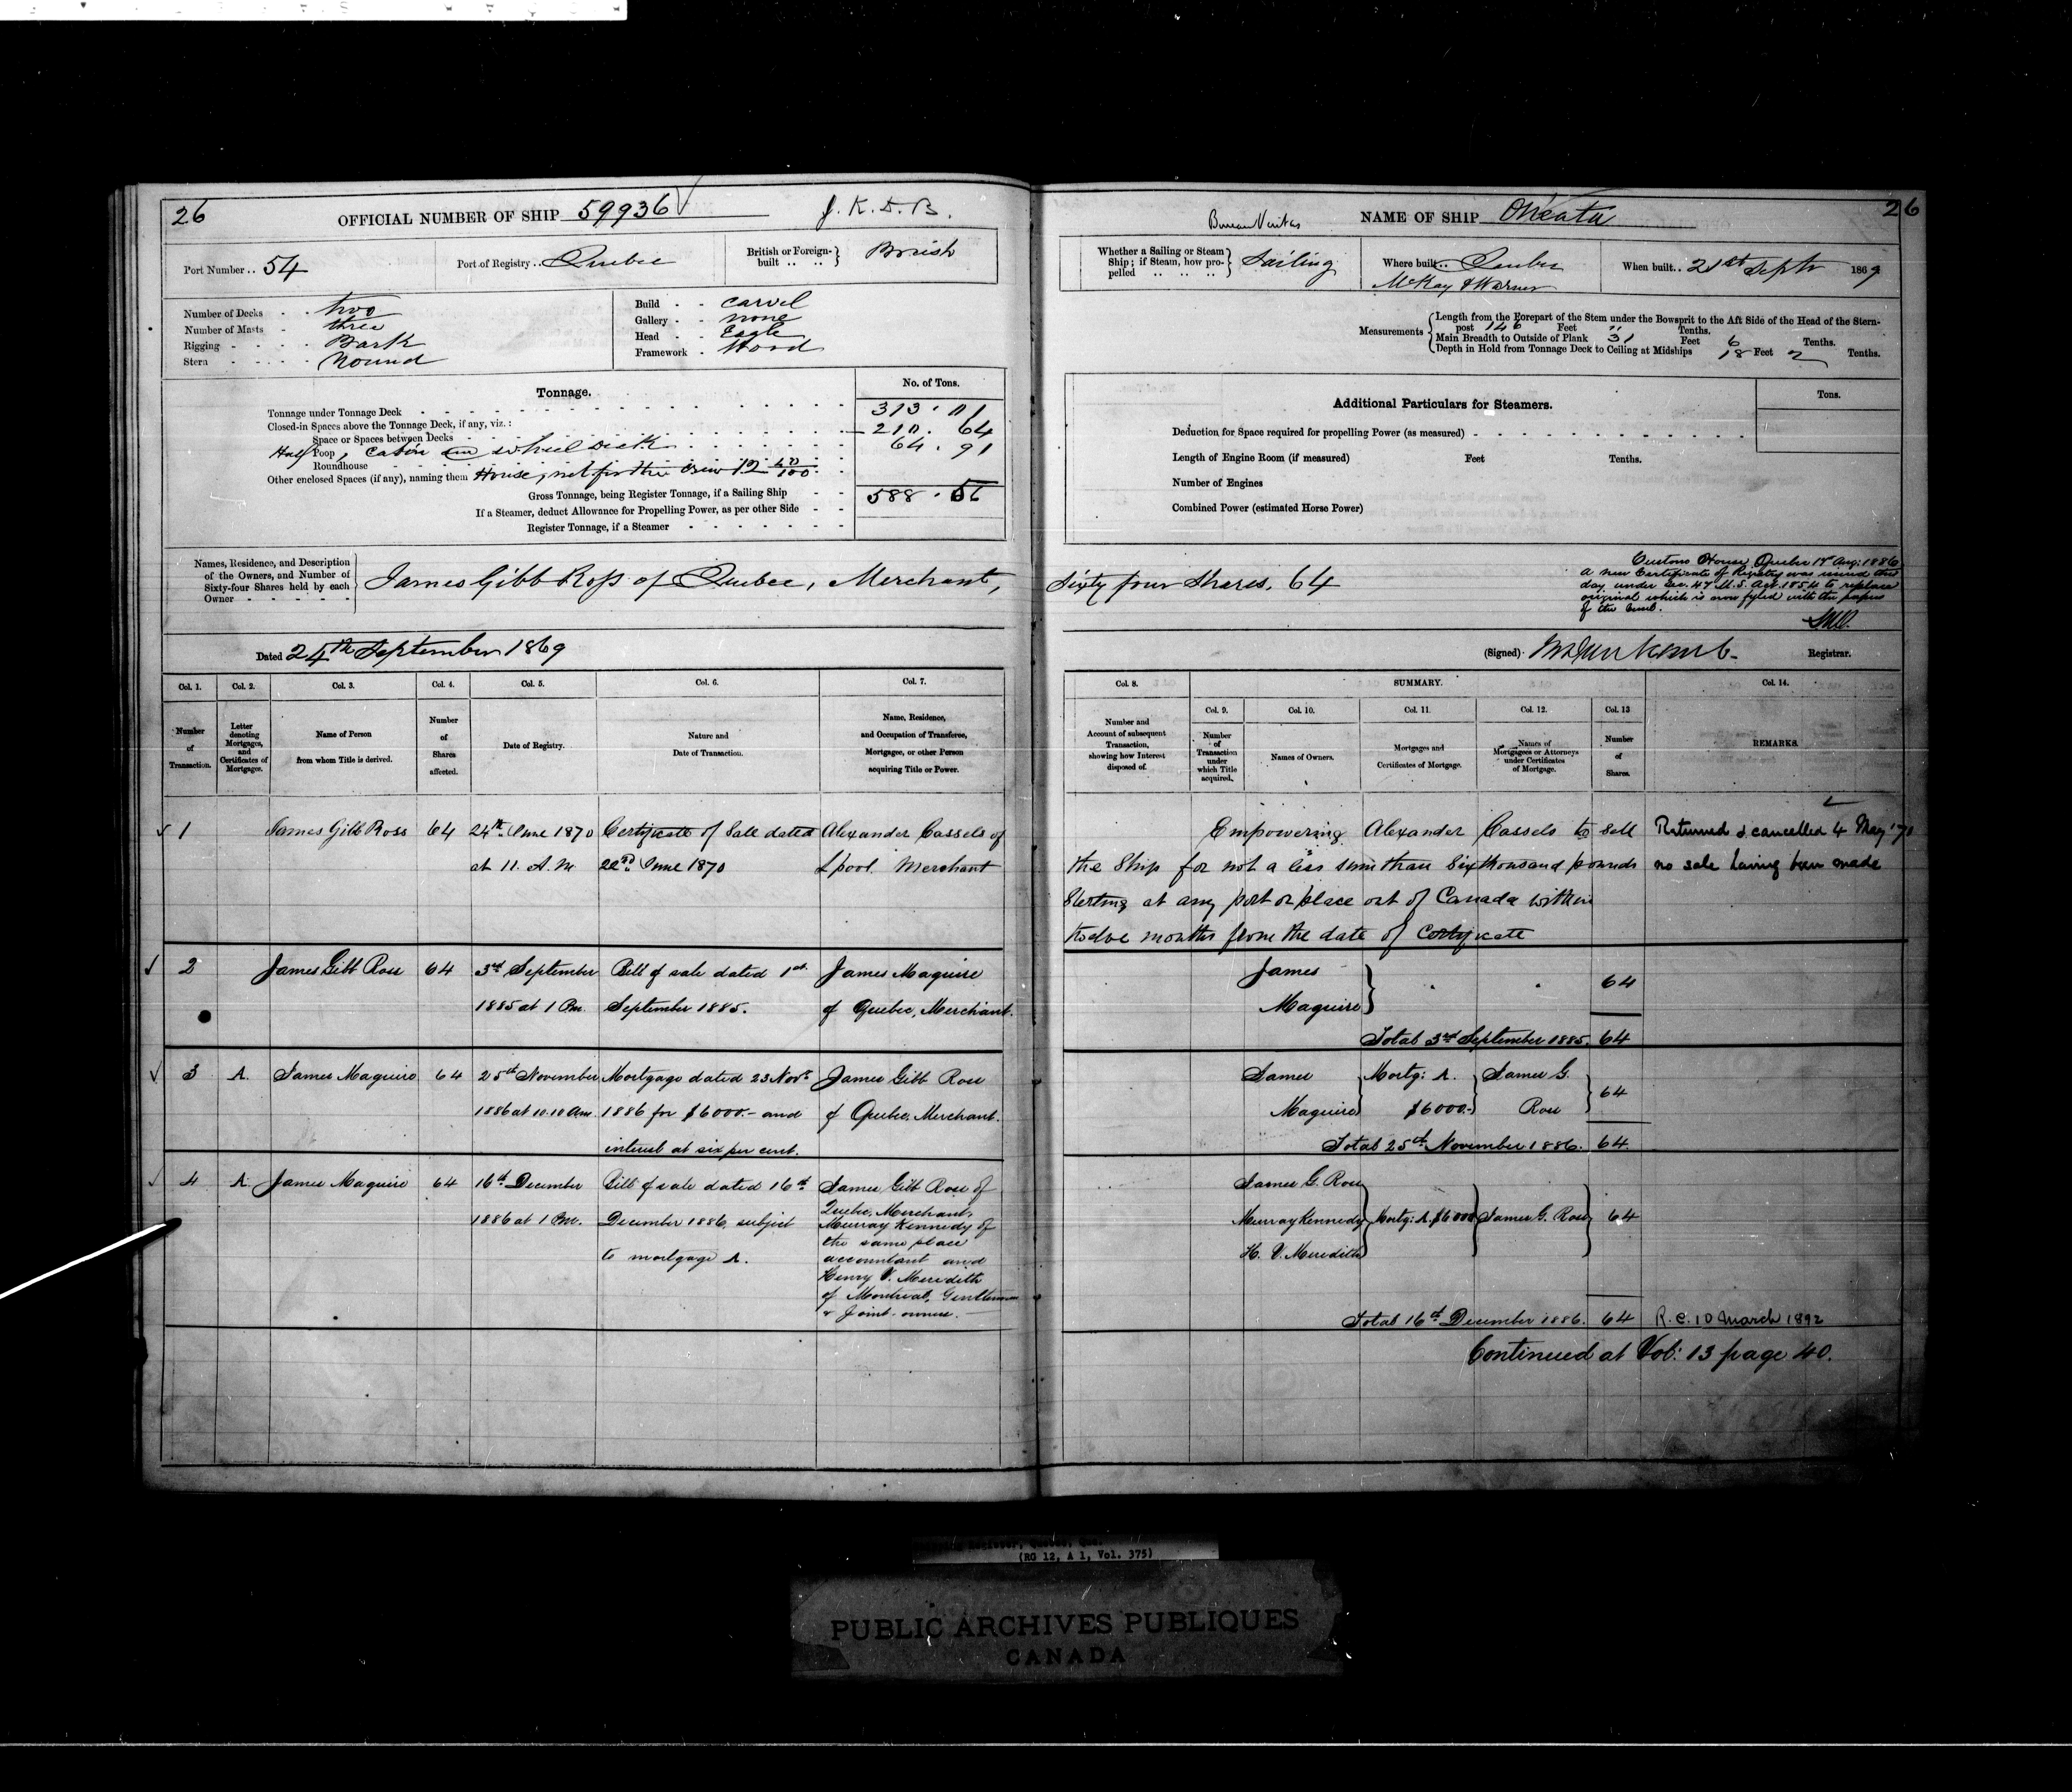 26
OFFICIAL NUMBER OF SHIP 59936
J. K. D. B.
Port Number .. 54
Port of Registry .. Quebec
British or Foreign-built .. .. } British
Number of Decks - - two
Number of Masts - three
Rigging - - - - Bark
Stern - - - - - Round
Build - - Carvel
Gallery - - none
Head - - Eagle
Framework - Wood
Tonnage.
No. of Tons.
Tonnage under Tonnage Deck
Closed-in Spaces above the Tonnage Deck, if any, viz.:
Space or Spaces between Decks 64
Half Poop, Cabin wheel Deck 64 . 91
Roundhouse
Other enclosed Spaces (if any), naming them House, not for the crew
Gross Tonnage, being Register Tonnage, if a Sailing Ship 588 . 56
If a Steamer, deduct Allowance for Propelling Power, as per other Side
Register Tonnage, if a Steamer
Names, Residence, and Description of the Owners, and Number of Sixty-four Shares held by each Owner
James Gibb Ross of Quebec, Merchant,
Dated 24th September 1869
Col. 1. Col. 2. Col. 3. Col. 4. Col. 5. Col. 6. Col. 7.
Number of Transaction.
Letter denoting Mortgages, and Certificates of Mortgage.
Name of Person from whom Title is derived.
Number of Shares affected.
Date of Registry.
Nature and Date of Transaction.
Name, Residence, and Occupation of Transferee, Mortgagee, or other Person acquiring Title or Power.
1 James Gibb Ross 64 24th June 1870 Certificate of Sale dated Alexander Cassels of
at 11. A.M 22nd June 1870 Lpool Merchant
2 James Gibb Ross 64 3rd September Bill of sale dated 1st James Maguire
1885 at 1 Pm. September 1885. of Quebec, Merchant.
3 A. James Maguire 64 25th November Mortgage dated 23 Novr James Gibb Ross
1886 at 10.10 Am. 1886 for $6000.- and of Quebec, Merchant.
interest at six per cent.
4 A. James Maguire 64 16th December Bill of sale dated 16th James Gibb Ross of
Quebec, Merchant,
1886 at 1 Pm. December 1886, subject Murray Kennedy of
the same place
to mortgage A. accountant and
Henry V. Meredith
of Montreal, Gentleman
& Joint-owners.
26
Bureau Veritas
NAME OF SHIP Oneata
Whether a Sailing or Steam Ship; if Steam, how propelled .. .. .. } Sailing
Where built .. Quebec
McKay & Warner
When built .. 21st Septr 1869
Measurements
Length from the Forepart of the Stem under the Bowsprit to the Aft Side of the Head of the Stern-
post 146 Feet " Tenths.
Main Breadth to Outside of Plank 31 Feet 6 Tenths.
Depth in Hold from Tonnage Deck to Ceiling at Midships 18 Feet 2 Tenths.
Additional Particulars for Steamers.
Tons.
Deduction for Space required for propelling Power (as measured)
Length of Engine Room (if measured) Feet Tenths.
Number of Engines
Combined Power (estimated Horse Power)
Sixty four Shares, 64
Custom House, Quebec Aug: 1886
a new Certificate of Registry was issued this
day under Sec. 47 M.S. Act. 1854 to replace
original which is now fyled with the papers
of the
(Signed) Registrar.
Col. 8. SUMMARY. Col. 14.
Col. 9. Col. 10. Col. 11. Col. 12. Col. 13
Number and Account of subsequent Transaction, showing how Interest disposed of.
Number of Transaction under which Title acquired.
Names of Owners.
Mortgages and Certificates of Mortgage.
Names of Mortgagees or Attorneys under Certificates of Mortgage.
Number of Shares.
REMARKS.
Empowering Alexander Cassels to sell Returned & cancelled 4 May '71
the Ship for not a less sum than Six thousand pounds no sale having been made
Sterling at any port or place out of Canada within
twelve months from the date of Certificate
James
Maguire 64
Total 3rd September 1885. 64
James Mortg: A. James G.
Maguire $6000.- Ross 64
Total 25th November 1886. 64.
James G. Ross
Murray Kennedy Mortg: A. $6000 James G. Ross 64
H. V. Meredith
Total 16th December 1886. 64 R.C. 10 March 1892
Continued at Vol: 13 page 40.
(RG 12, A 1, Vol. 375)
PUBLIC ARCHIVES PUBLIQUES
CANADA